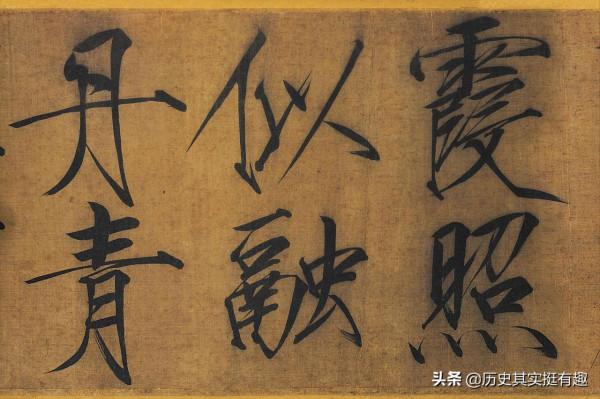 霞照
似融
丹青
头条 @历史其实挺有趣